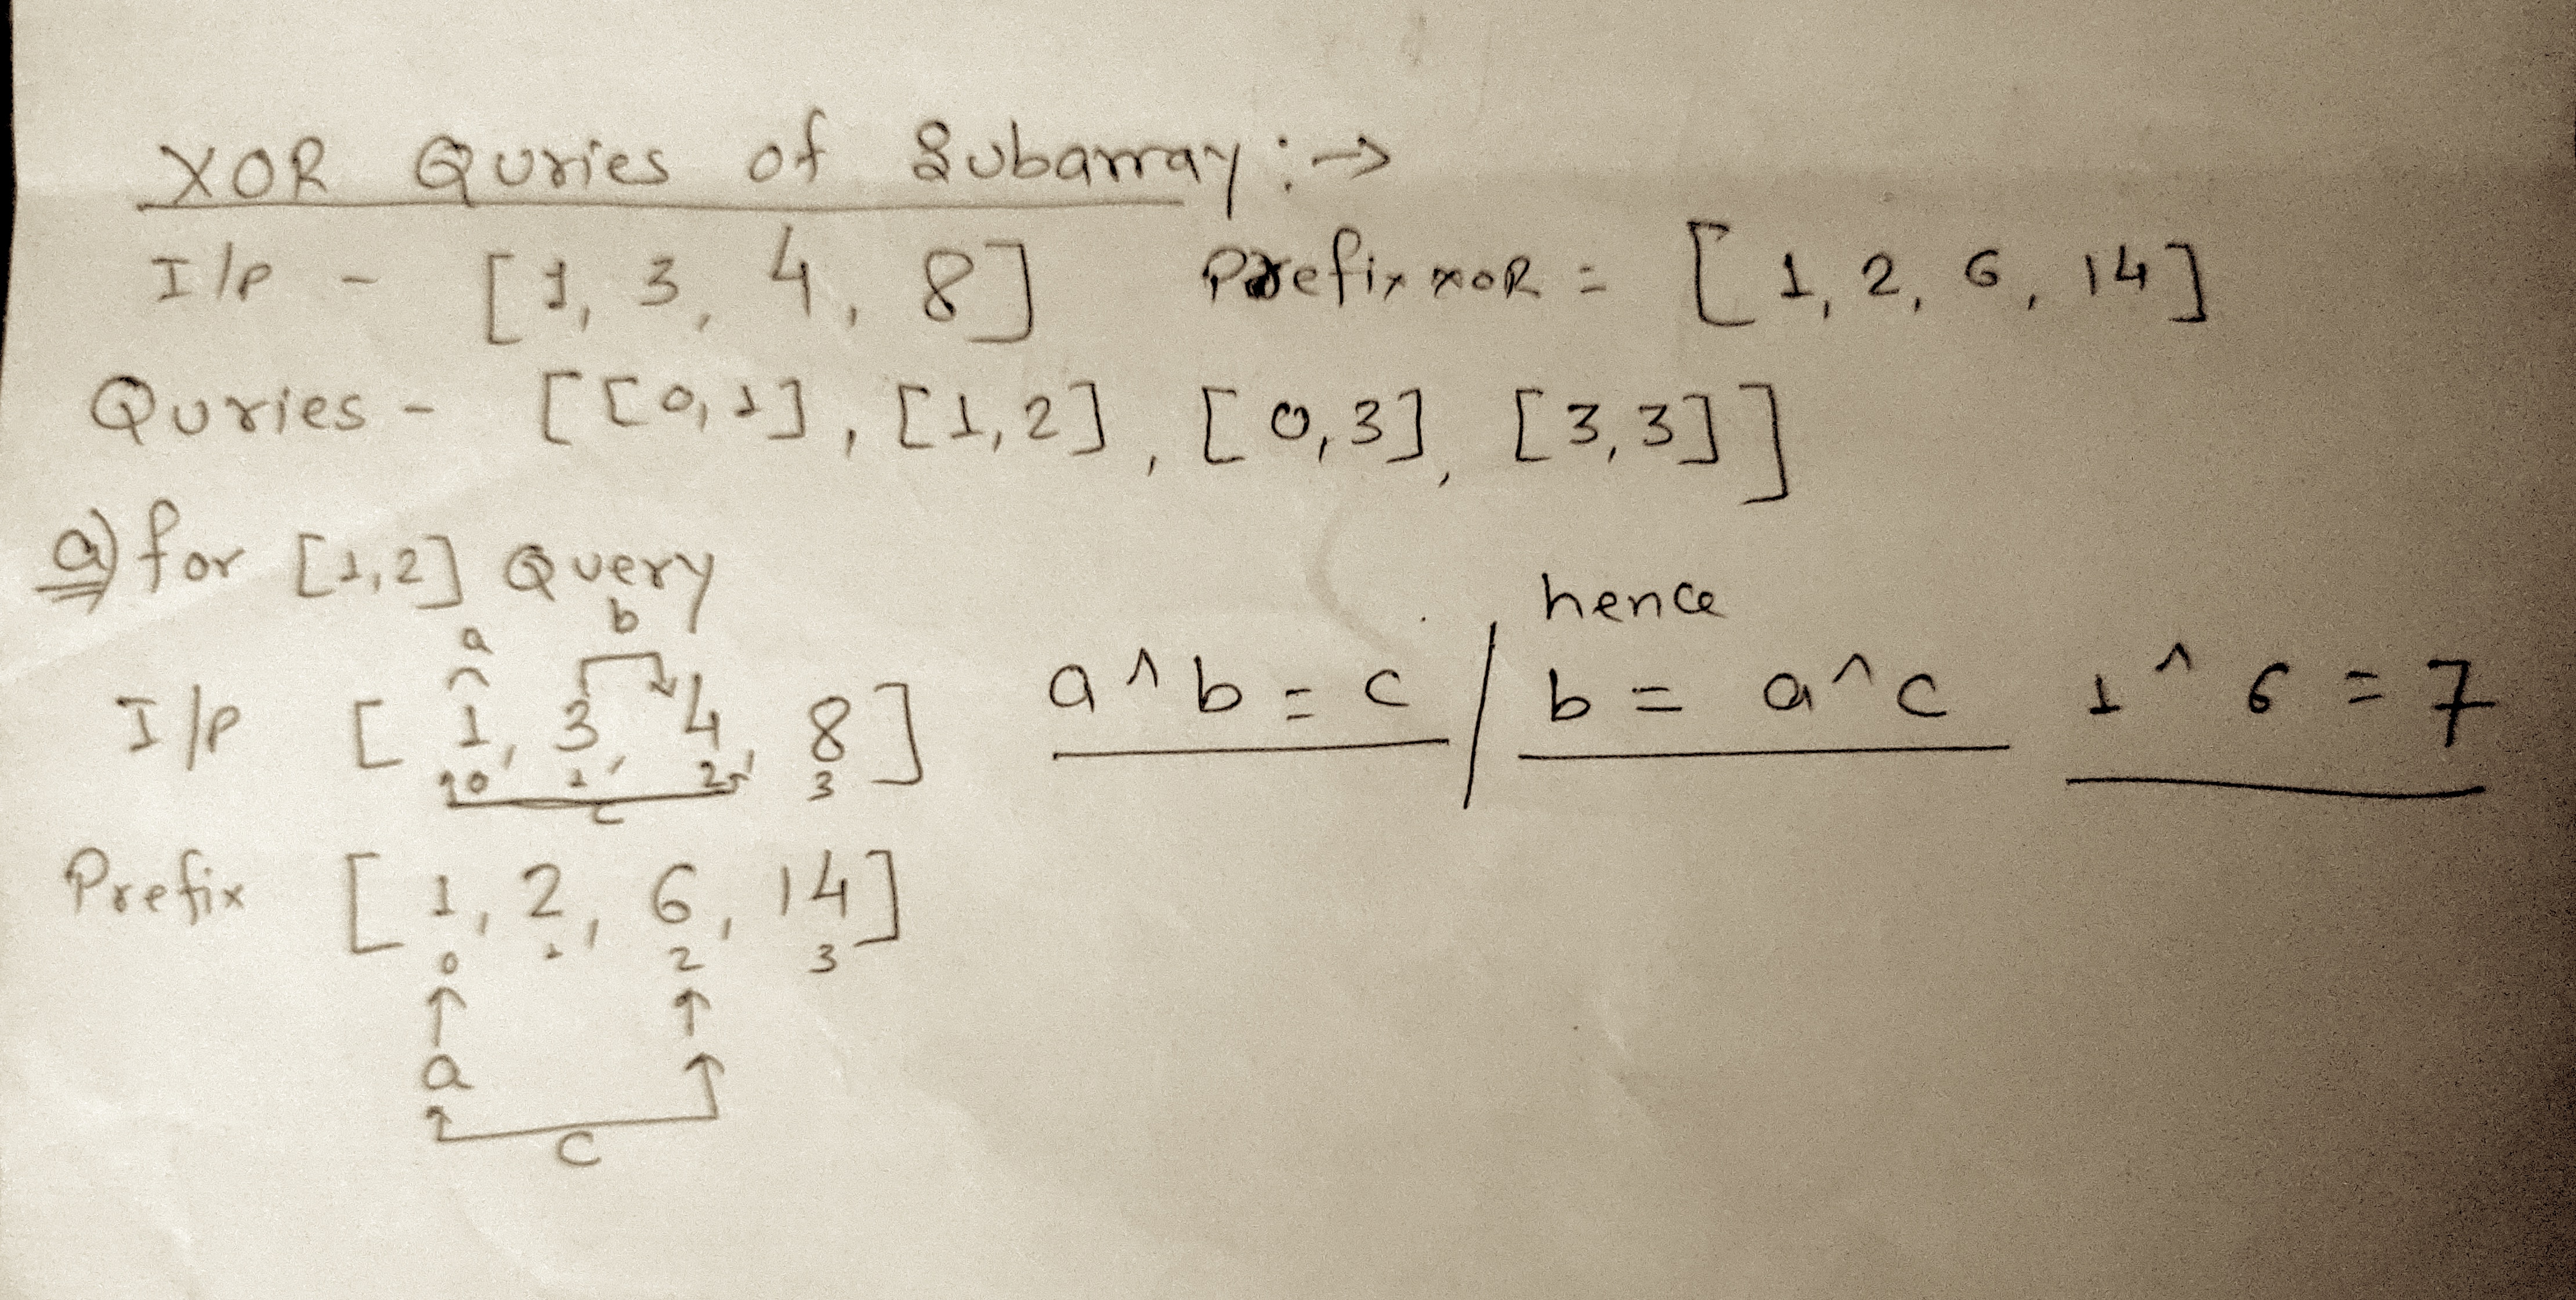 XOR Quries of Subarray :→
I/P - [1, 3, 4, 8] Prefix XOR = [1, 2, 6, 14]
Quries - [[0,1], [1,2], [0,3], [3,3]]
a) for [1,2] Query
a b
I/P [1, 3, 4, 8] a^b = c / hence b = a^c 1^6 = 7
0 1 2 3
c
Prefix [1, 2, 6, 14]
0 1 2 3
↑ ↑
a
c